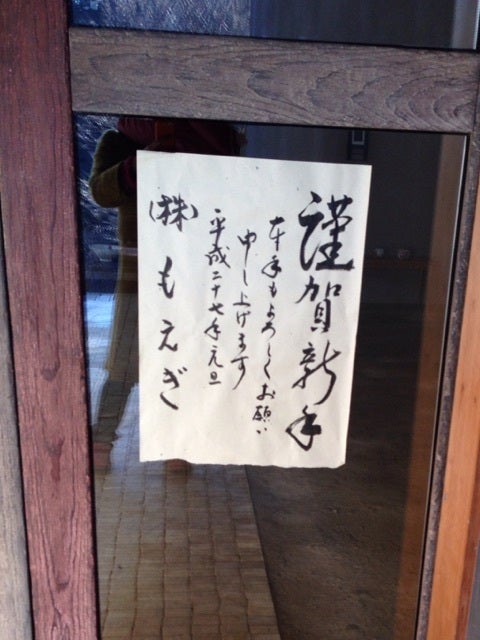 謹賀新年
本年もよろしくお願い
申し上げます
平成二十七年元旦
㈱もえぎ